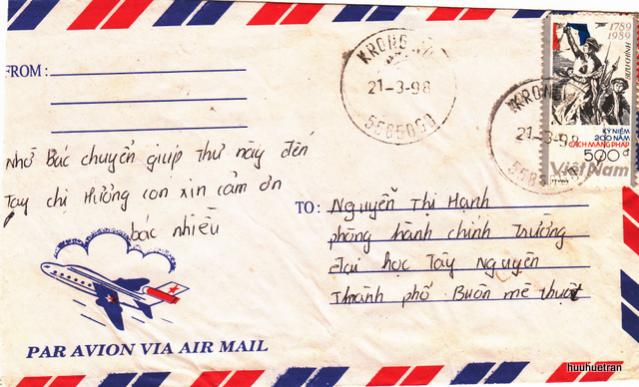 FROM:
KRONG NÔ
21-3-98
KRONG N
21-3-98
1789
1989
KỶ NIỆM
200 NĂM
CÁCH MẠNG PHÁP
500đ
Việt Nam
Nhờ Bác chuyển giúp thư này đến
Tay chị Hương con xin cảm ơn
bác nhiều
TO: Nguyễn Thị Hạnh
phòng hành chính Trường
đại học Tây Nguyên
Thành phố Buôn mê thuột
PAR AVION VIA AIR MAIL
huuhuetran